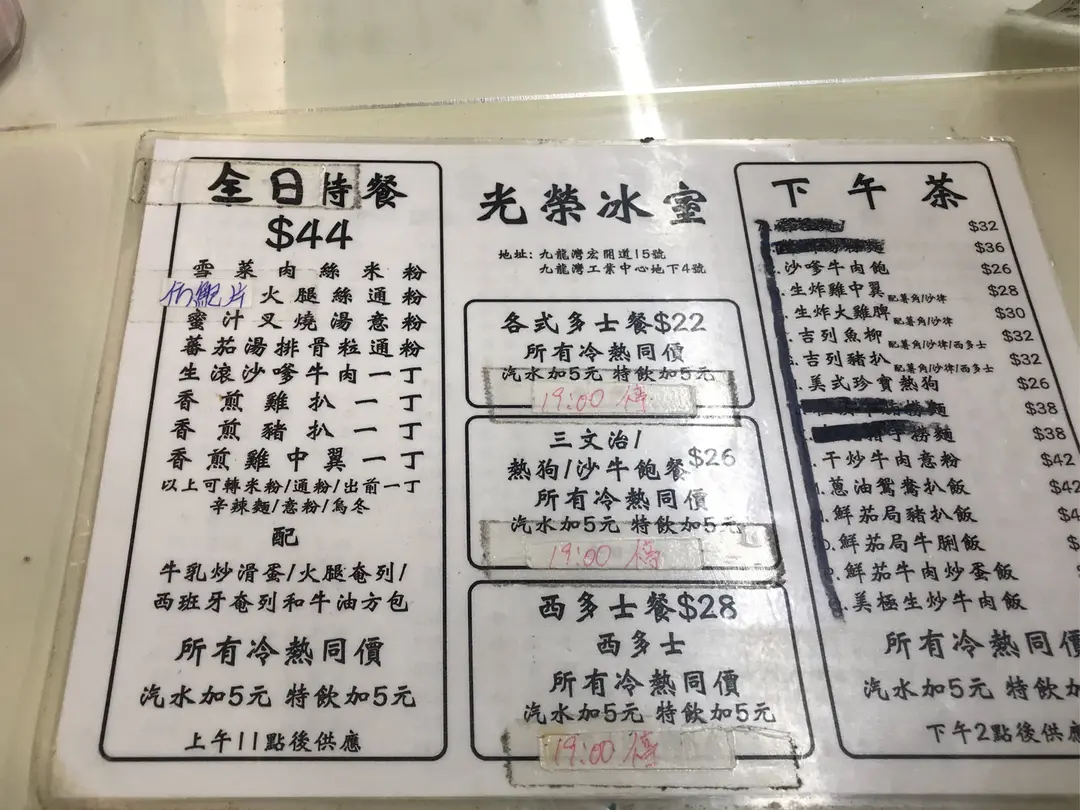 全日特餐
$44
雪菜肉絲米粉
火腿絲通粉
蜜汁叉燒湯意粉
蕃茄湯排骨粒通粉
生滾沙嗲牛肉一丁
香煎雞扒一丁
香煎豬扒一丁
香煎雞中翼一丁
以上可轉米粉/通粉/出前一丁
辛辣麵/意粉/烏冬
配
牛乳炒滑蛋/火腿奄列/
西班牙奄列和牛油方包
所有冷熱同價
汽水加5元 特飲加5元
上午11點後供應
光榮冰室
地址: 九龍灣宏開道15號
九龍灣工業中心地下4號
各式多士餐$22
所有冷熱同價
汽水加5元 特飲加5元
19:00 停
三文治/
熱狗/沙牛飽餐$26
所有冷熱同價
汽水加5元 特飲加5元
19:00 停
西多士餐$28
西多士
所有冷熱同價
汽水加5元 特飲加5元
19:00 停
下午茶
$32
$36
沙嗲牛肉飽 $26
生炸雞中翼 配薯角/沙律 $28
生炸大雞髀 配薯角/沙律 $30
吉列魚柳 配薯角/沙律/西多士 $32
吉列豬扒 配薯角/沙律/西多士 $32
美式珍寶熱狗 $26
撈麵 $38
撈麵 $38
干炒牛肉意粉 $42
蔥油鴛鴦扒飯 $42
鮮茄焗豬扒飯
鮮茄局牛脷飯
鮮茄牛肉炒蛋飯
美極生炒牛肉飯
所有冷熱同價
汽水加5元 特飲加
下午2點後供應